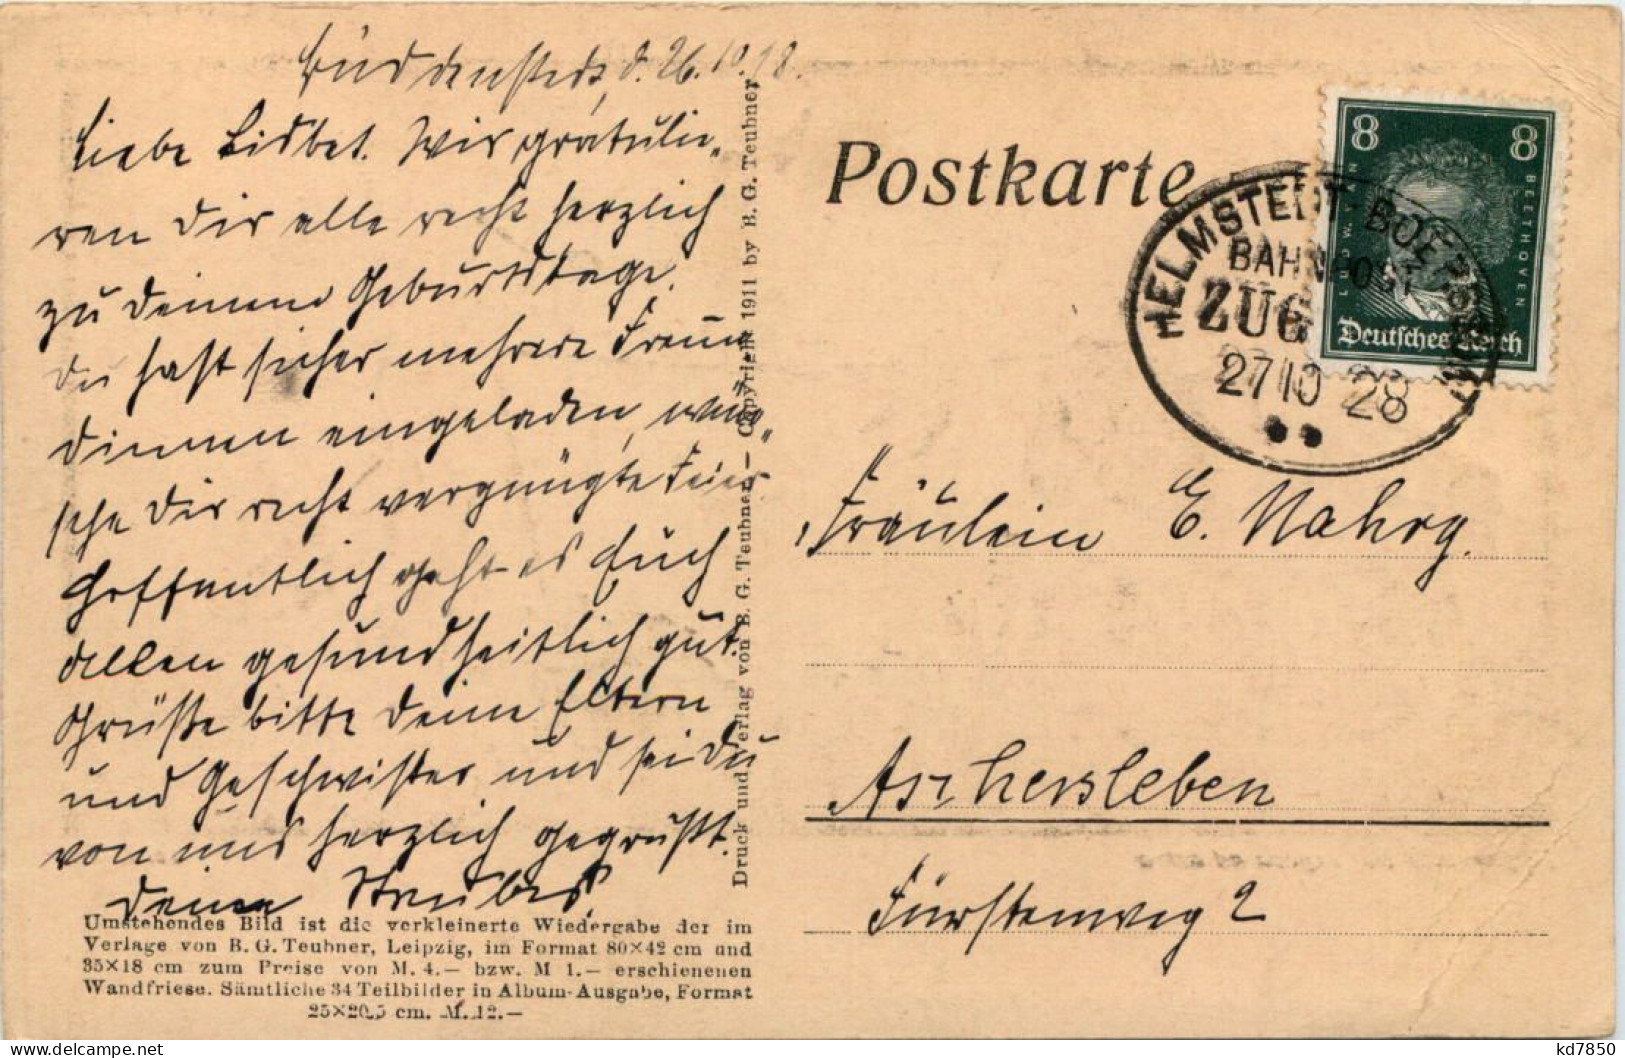 Büddenstedt, d. 26.10.28.
Liebe Lisbet. Wir gratulie-
ren Dir alle recht herzlich
zu Deinem Geburtstage.
Du hast sicher mehrere Freun-
dinnen eingeladen, wün-
sche Dir recht vergnügte Feier
Hoffentlich geht es Euch
allen gesundheitlich gut.
Grüße bitte Deine Eltern
und Geschwister und sei Du
von uns herzlich gegrüßt.
Deine
Umstehendes Bild ist die verkleinerte Wiedergabe der im
Verlage von B. G. Teubner, Leipzig, im Format 80×42 cm und
35×18 cm zum Preise von M. 4.— bzw. M 1.— erschienenen
Wandfriese. Sämtliche 34 Teilbilder in Album-Ausgabe, Format
25×20,5 cm. M. 12.—
Druck und Verlag von B. G. Teubner — Copyright 1911 by B. G. Teubner
Postkarte
HELMSTEDT-
BAHNPOST
ZUG
27 10 28
8 8
LUDW. V.
BEETHOVEN
Deutsches Reich
Fräulein E. Nahrg.
Aschersleben
Fürstenweg 2
kd7850